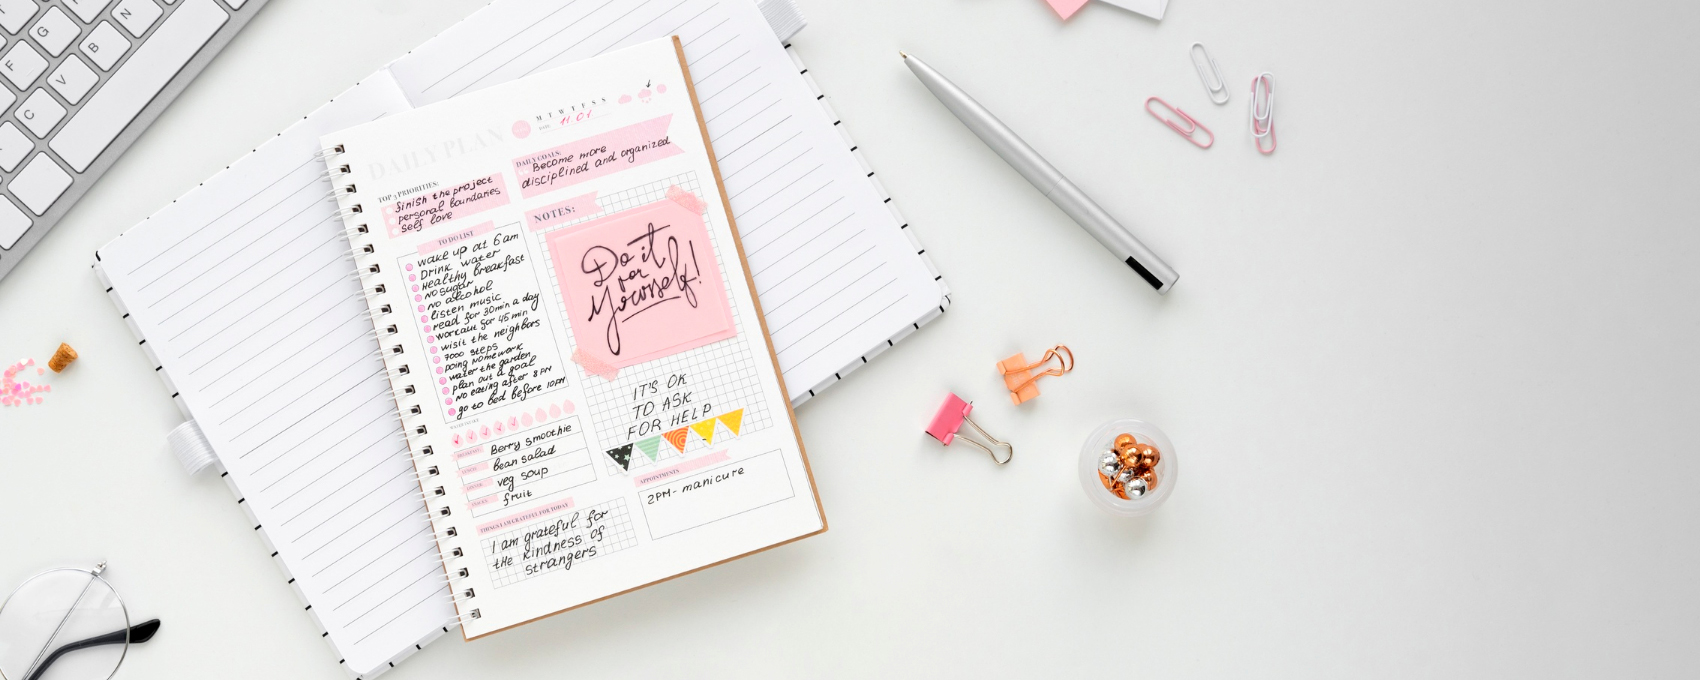 G
B
F
V
C
DAILY PLAN
M T W T F S S
DATE:
11.01
DAILY GOALS:
Become more
disciplined and organized
TOP 3 PRIORITIES:
finish the project
personal boundaries
self love
TO DO LIST
wake up at 6 am
Drink water
Healthy breakfast
no sugar
no alcohol
listen music
read for 30min a day
workout for 45 min
visit the neighbors
7000 steps
doing homework
water the garden
plan out a goal
no eating after 8 PM
go to bed before 10PM
NOTES:
Do it
for
yourself!
IT'S OK
TO ASK
FOR HELP
Berry smoothie
bean salad
veg soup
fruit
APPOINTMENTS
2PM- manicure
THINGS I AM GRATEFUL FOR TODAY
I am grateful for
the kindness of
strangers